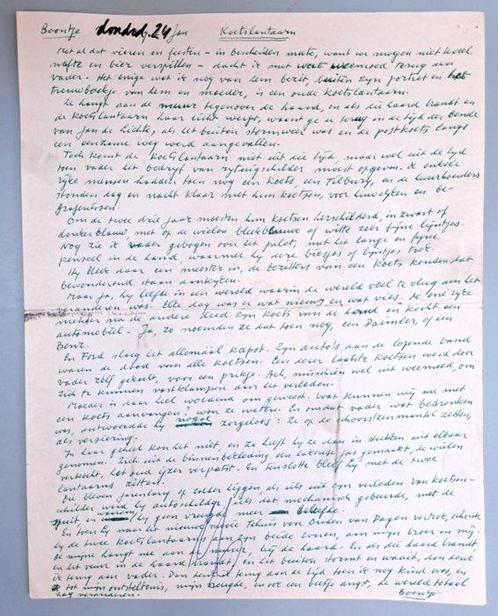 Boontje dond. 24 jan Koetslantaarn
Met al dat vieren en feesten - in bescheiden mate, want we mogen niet teveel
nafte en bier verspillen - dacht ik met weemoed terug aan
vader. Het enige wat ik nog van hem bezit, buiten zijn portret en het
trouwboekje van hem en moeder, is een oude koetslantaarn.
Ze hangt aan de muur tegenover de haard, en als die haard brandt en
de koetslantaarn haar licht werpt, waant ge u terug in de tijd der bende
van Jan de Lichte, als het buiten stormweer was en de postkoets langs
een eenzame weg werd aangevallen.
Toch komt de koetslantaarn niet uit die tijd, maar wel uit de tijd
toen vader het bedrijf van rijtuigschilder moest opgeven. De enkele
rijke mensen hadden toen nog een koets, een Tilbury, en de huurhouders
stonden dag en nacht klaar met hun koetsen, voor huwelijken en be-
grafenissen.
Om de twee drie jaar moesten hun koetsen herschilderd, in zwart of
donkerblauw, met op de wielen bleekblauwe of witte zeer fijne lijntjes.
Nog zie ik vader gebogen over het palet, met het lange en fijne
penseel in de hand, waarmee hij deze biesjes of lijntjes trok.
Hij bleek daar een meester in, de bezitters van een koets konden dat
bewonderend staan aankijken.
Maar ja, hij leefde in een wereld waarin de wereld veel te vlug aan het
veranderen was. Elke dag was er wat nieuws en wat vies. De ene rijke
meneer na de andere deed zijn koets van de hand en kocht een
automobiel. - Ja, zo noemden ze dat toen nog, een Daimler, of een
Benz.
En Ford sloeg het allemaal kapot. Zijn auto's aan de lopende band
waren de dood van alle koetsen. Een dezer laatste koetsen werd door
vader zelf gekocht voor een prikje. Ach, misschien wel uit weemoed, om
zich te kunnen vastklampen aan het verleden.
Moeder is daar heel woedend om geweest. Wat kunnen wij nu met
een koets aanvangen? wou ze weten. En omdat vader wat bedronken
was, antwoordde hij nogal zorgeloos: Ze op de schoorsteenmantel zetten,
als versiering.
In haar geheel kon het niet, en zo heeft hij ze dan in stukken uit elkaar
genomen. Zich uit de binnenbekleding een gemaakt, de wielen
verkocht, het oud ijzer verpatst. En tenslotte bleef hij met de twee
lantaarns zitten.
Die bleven jarenlang op zolder liggen, als iets uit zijn verleden van koetsen-
schilder werd hij autoschilder, iets dat mechanisch gebeurde, met de
spuit, en waaraan hij geen vreugde meer beleefde.
En toen hij naar het nieuwe mooie Tehuis voor Ouden van Dagen vertrok, schonk
hij de twee koetslantaarns aan zijn beide zonen, aan mijn broer en mij.
De mijne hangt nu aan de muur, bij de haard. En als die haard brandt
en het vuur in de haard , en het buiten stormt en waait, dan denk
ik terug aan vader. Dan denk ik terug aan de tijd toen ik nog kind was, en
tot mijn ontsteltenis, mijn vreugde, en ook een beetje angst, de wereld totaal
zag veranderen. Boontje